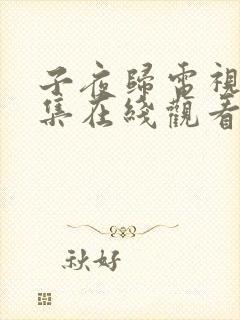 子夜歸電視
集在綫觀看
秋好